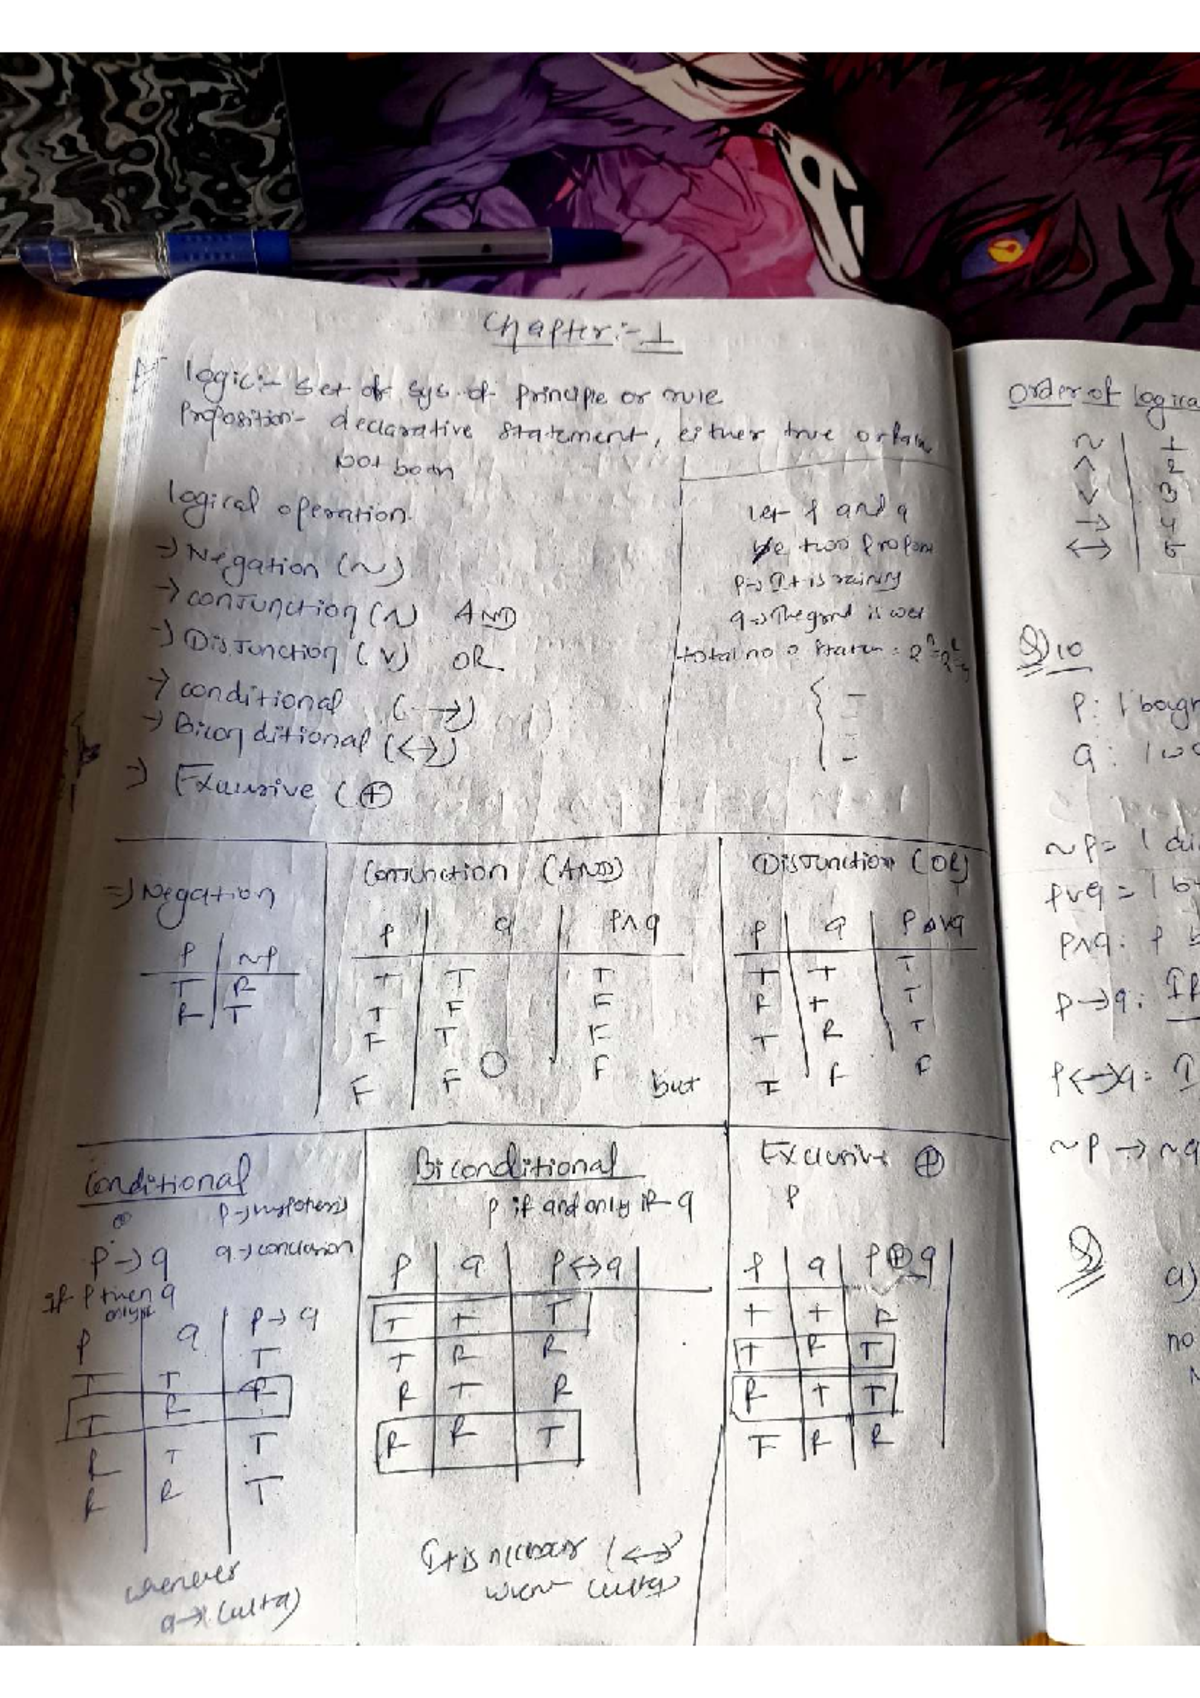 Chapter:- 1
Logic:- set of sys. of principle or rule
Proposition- declarative statement, either true or false
not both
logical operation.
→ Negation (~)
→ conjunction (∧) AND
→ Disjunction (∨) OR
→ conditional (→)
→ Biconditional (↔)
→ Exclusive (⊕
Let p and q
be two propon
p→ It is rainy
q→ The gond is wet
total no o staten = 2ⁿ=2²=4
⇒ Negation
P ~P
T F
F T
Conjunction (AND)
P q P∧q
T T T
T F F
F T F
F F F
but
Disjunction (OR)
P q P∨q
T T T
F T T
T F T
F F F
Conditional
P→ hypothesis
P→q q→ conclusion
if P then q
only if
P q P→q
T T T
T F F
F T T
F F T
whenever
q→ (ulta)
Biconditional
P if and only if q
P q P↔q
T T T
T F F
F T F
F F T
It is necessary (↔)
(ulta)
Exclusive ⊕
P
P q P⊕q
T T F
T F T
F T T
F F F
Order of logica
~ 1
∧ 2
∨ 3
→ 4
↔ 5
Q) 10
P: I bough
q: I wo
~P= I di
P∨q = I b
P∧q: P b
P→q: If
P↔q: I
~P → ~q
Q) a)
no